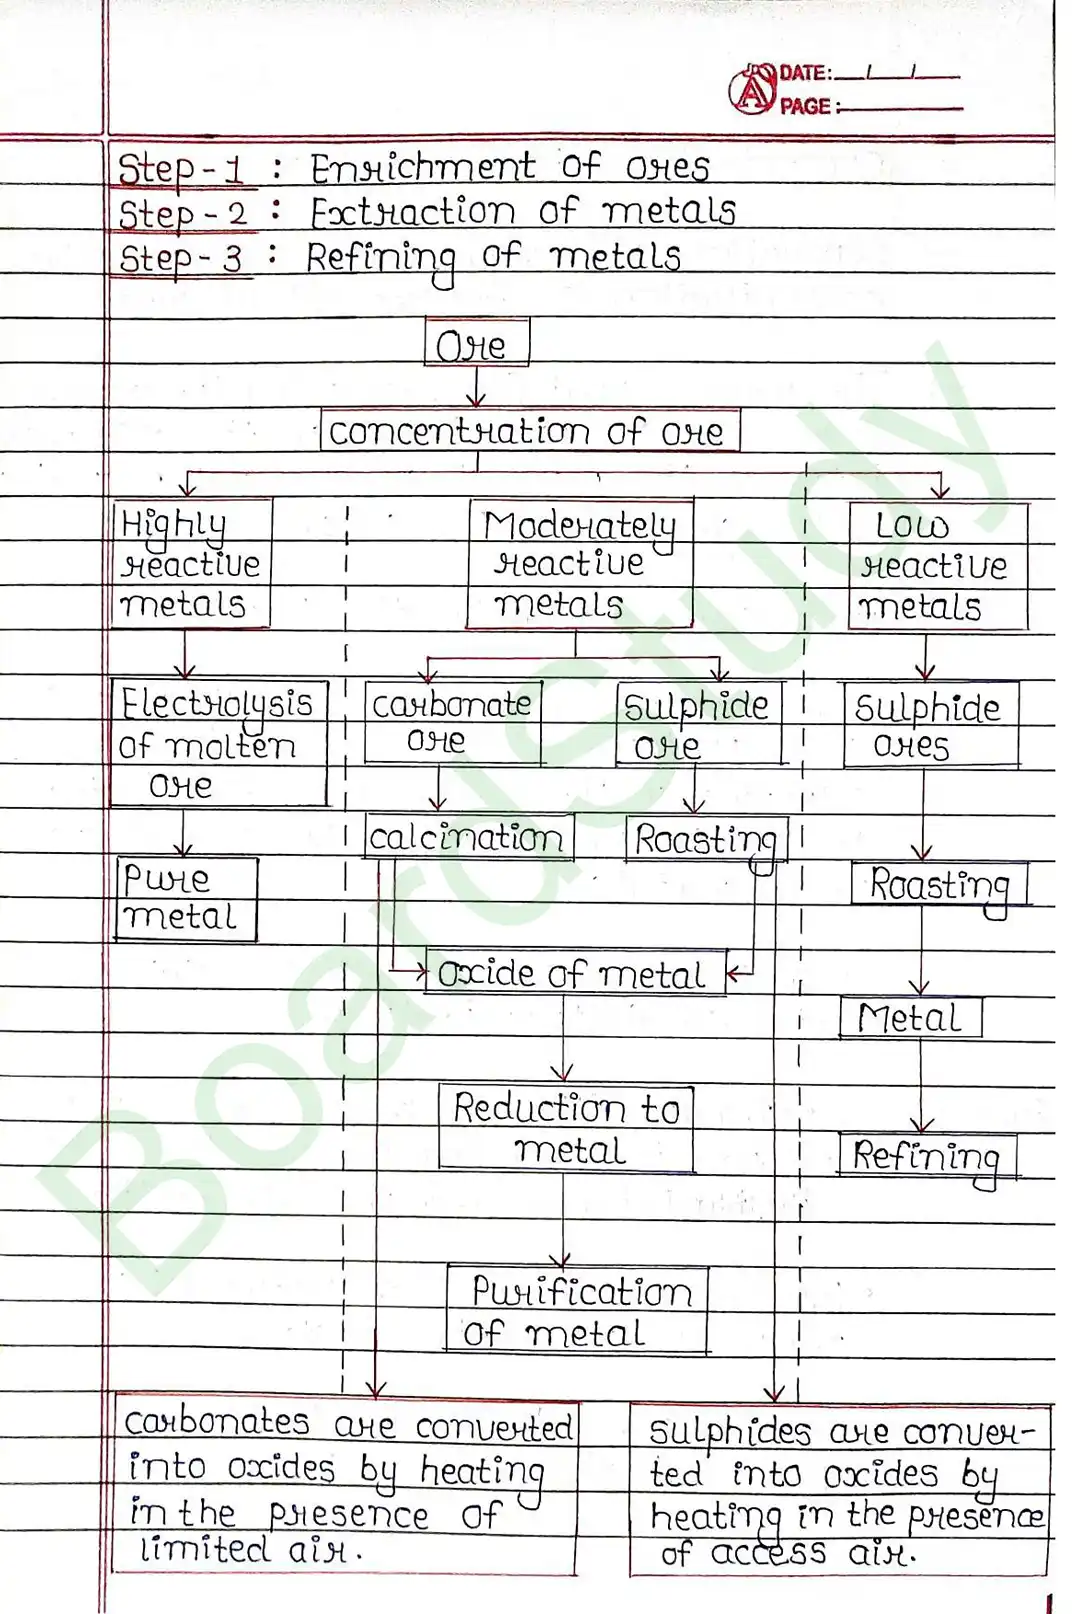 DATE: / /
PAGE:
Step-1 : Enrichment of ores
Step-2 : Extraction of metals
Step-3 : Refining of metals
Ore
concentration of ore
Highly
reactive
metals
Moderately
reactive
metals
Low
reactive
metals
Electrolysis
of molten
ore
carbonate
ore
Sulphide
ore
Sulphide
ores
calcination
Roasting
Pure
metal
Roasting
oxide of metal
Metal
Reduction to
metal
Refining
Purification
of metal
carbonates are converted
into oxides by heating
in the presence of
limited air.
sulphides are conver-
ted into oxides by
heating in the presence
of access air.
BoardStudy